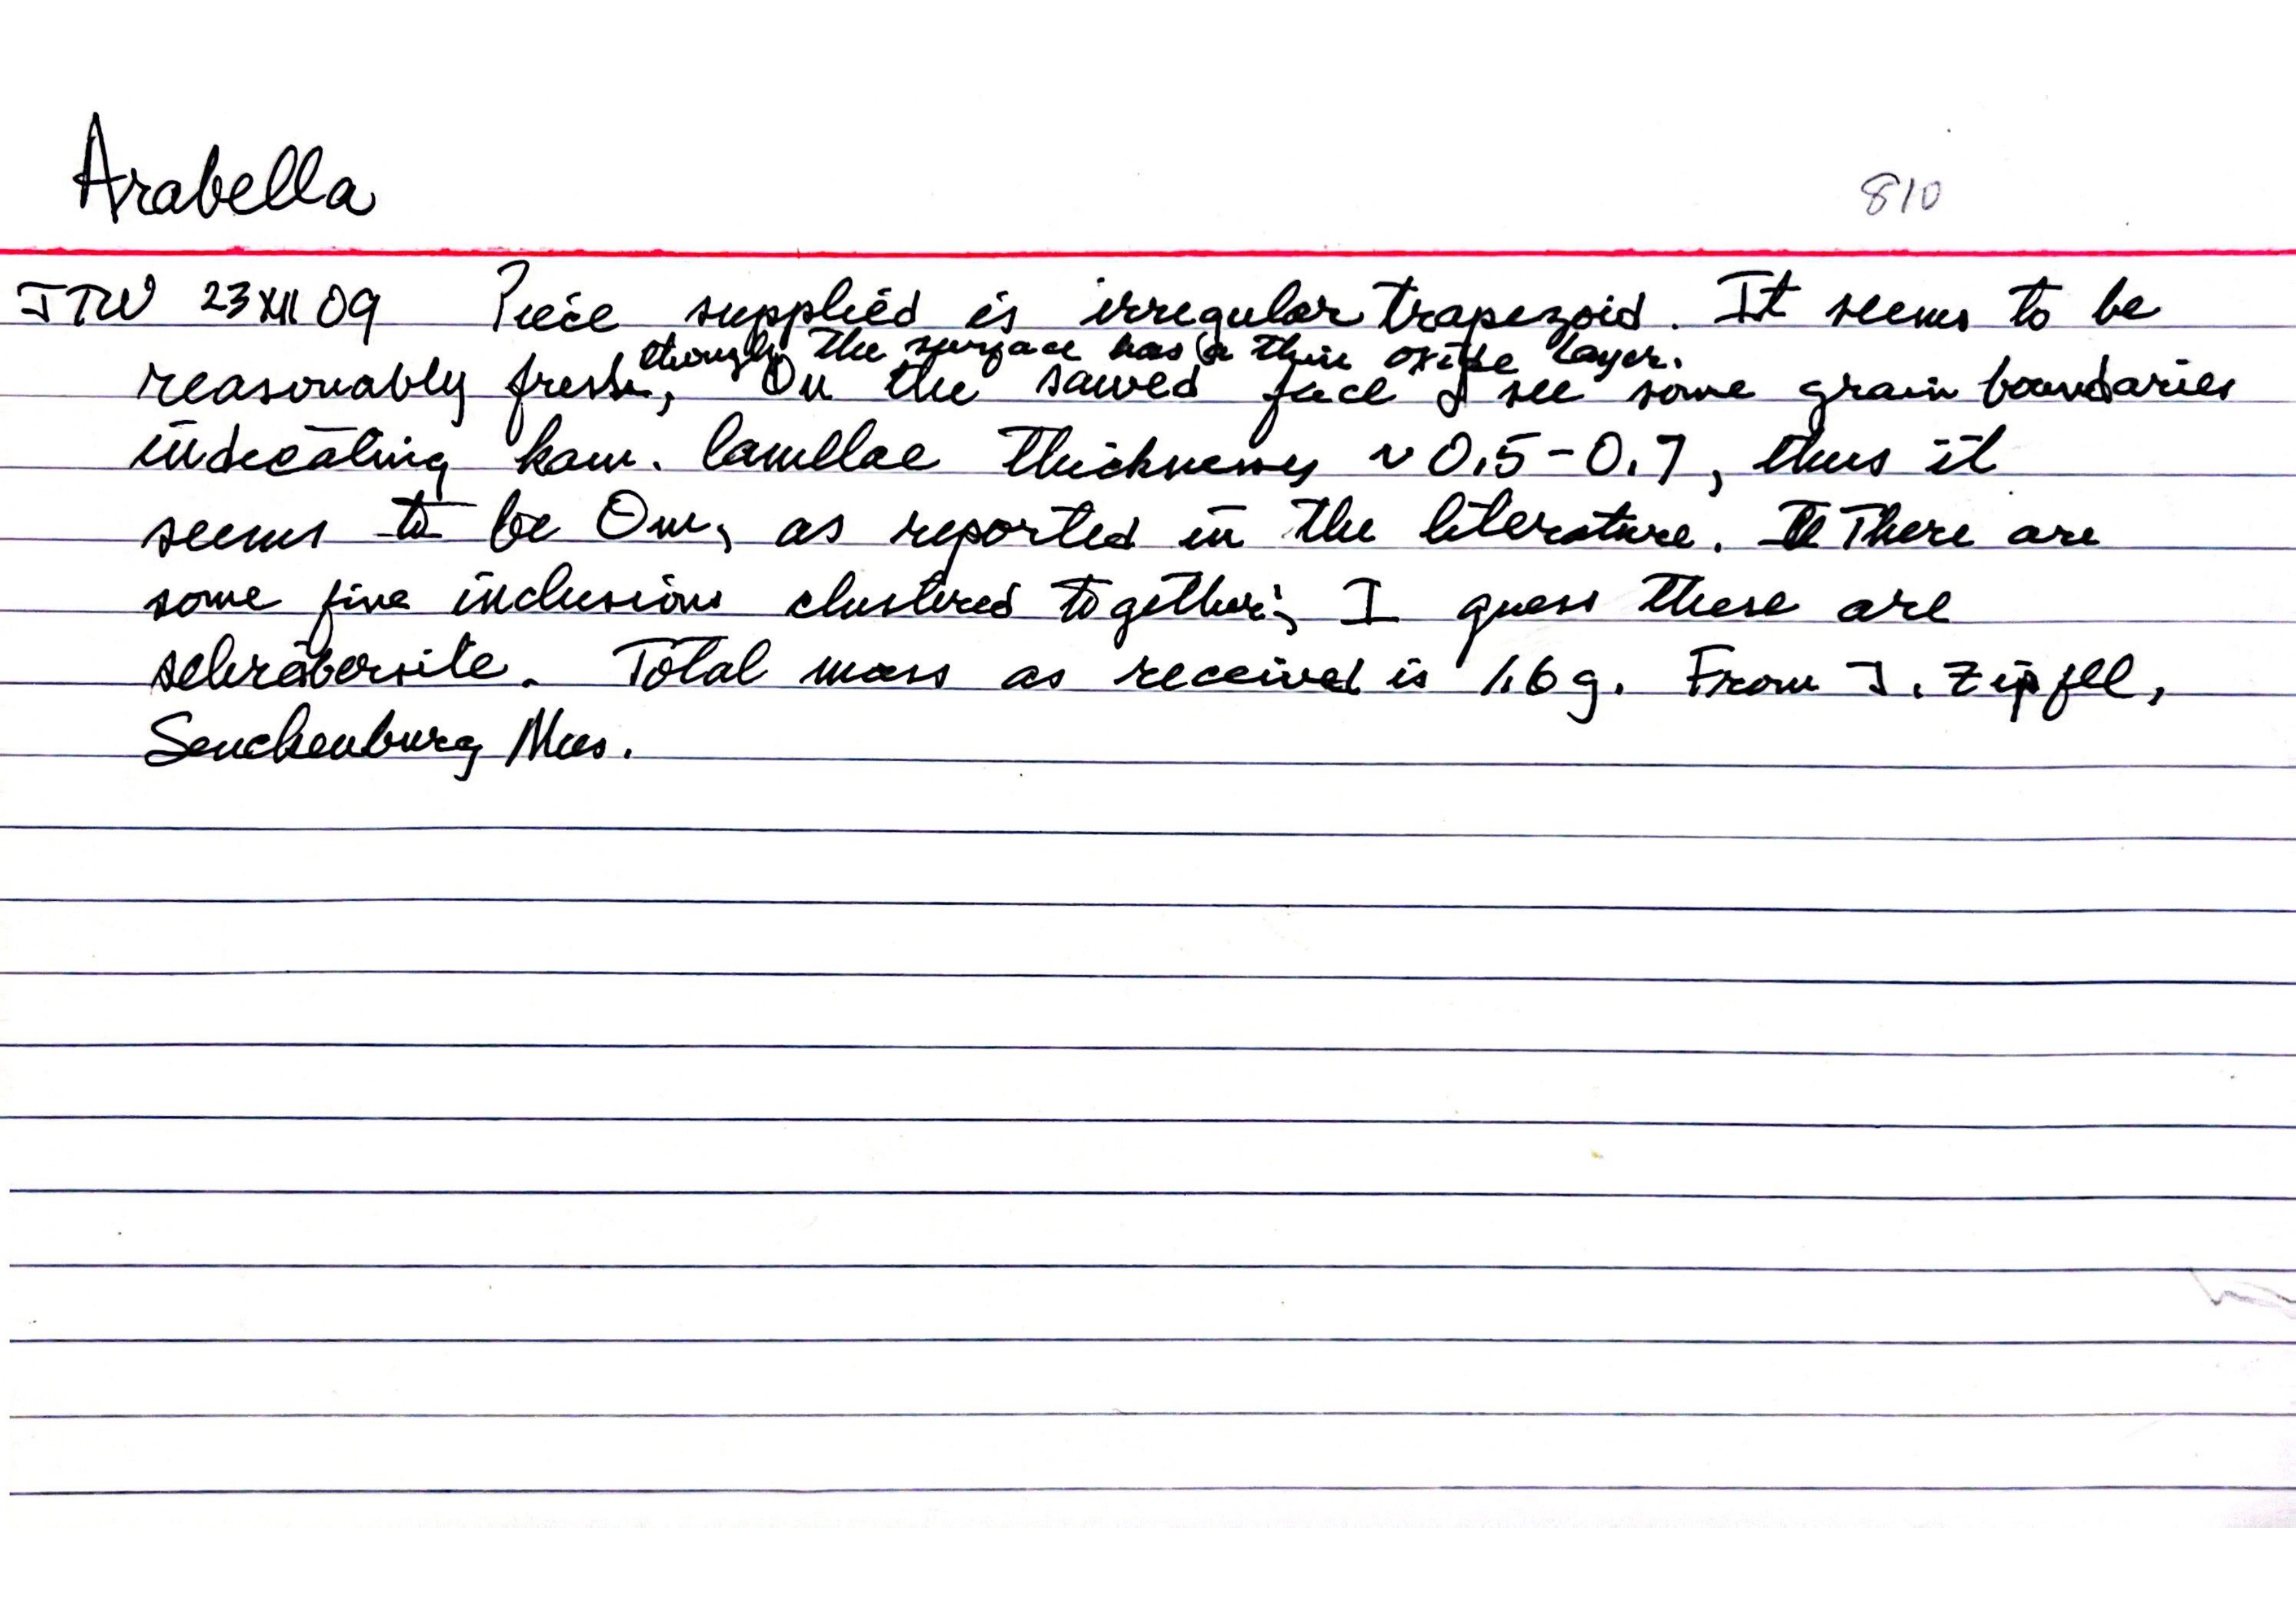 Arabella
810
JTW 23 XII 09 Piece supplied is irregular trapezoid. It seems to be
though the surface has a thin oxide layer.
reasonably fresh, On the sawed face I see some grain boundaries
indicating kam. lamellae thickness ~ 0.5-0.7, thus it
seems to be Om, as reported in the literature. There are
some fine inclusions clustered together; I guess these are
schreibersite. Total mass as received is 1.6 g. From J. Zipfel,
Senckenburg Mus.